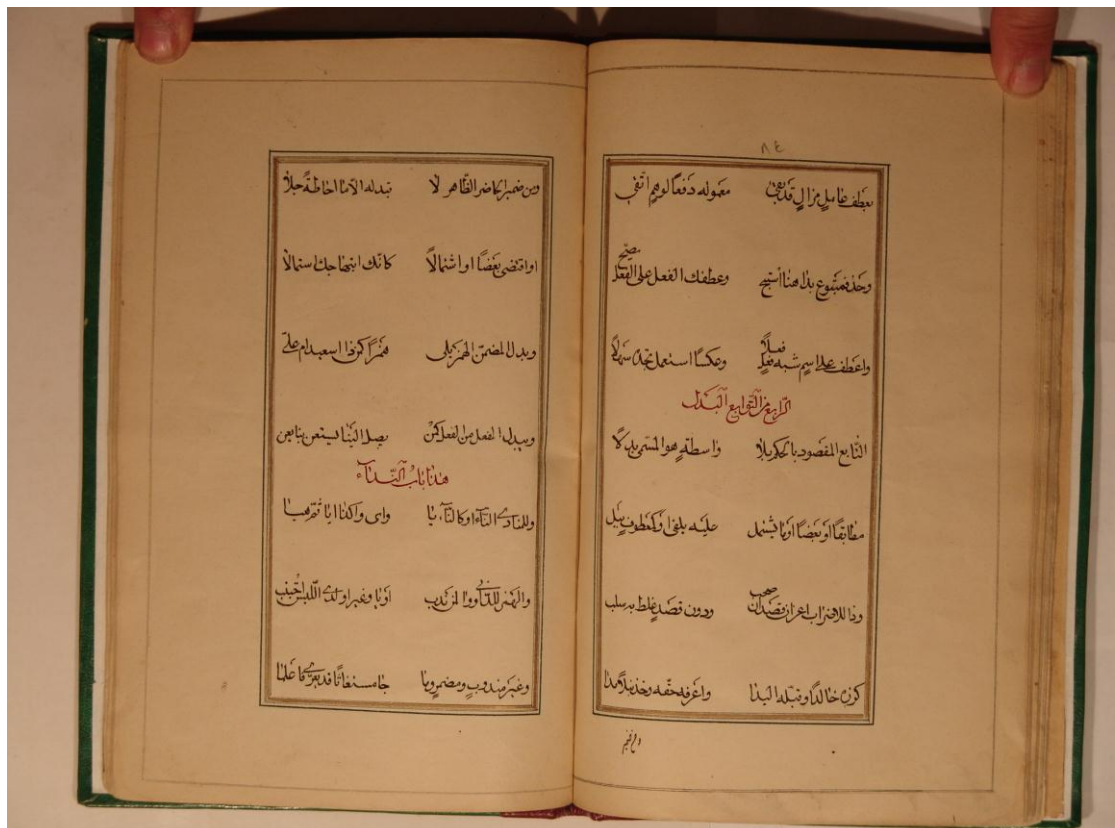 ٨٤
بعطف عامل مزال قد بقي معموله دفعا لوهم اتقي
وحذف متبوع بدا هنا استبح وعطفك الفعل على الفعل يصح
واعطف على اسم شبه فعل فعلا وعكسا استعمل تجده سهلا
الرابع من التوابع البدل
التابع المقصود بالحكم بلا واسطة هو المسمى بدلا
مطابقا أو بعضا أو ما يشتمل عليه يلفى أو كمعطوف ببل
وذا للاضراب اعز ان قصدا صحب ودون قصد غلط به سلب
كزره خالدا وقبله اليدا واعرفه حقه وخذ نبلا مدا
ومن ضمير الحاضر الظاهر لا تبدله الا ما احاطة جلا
او اقتضى بعضا او اشتمالا كانك ابتهاجك استمالا
وبدل المضمن الهمز يلي همزا كمن ذا اسعيد ام علي
ويبدل الفعل من الفعل كمن يصل الينا يستعن بنا يعن
هذا باب النداء
وللمنادى الناء او كالناء يا واي وا كذا ايا ثم هيا
والهمز للداني ووا لمن ندب او يا وغير وا لدى اللبس اجتنب
وغير مندوب ومضمر وما جا مستغاثا قد يعرى فاعلما